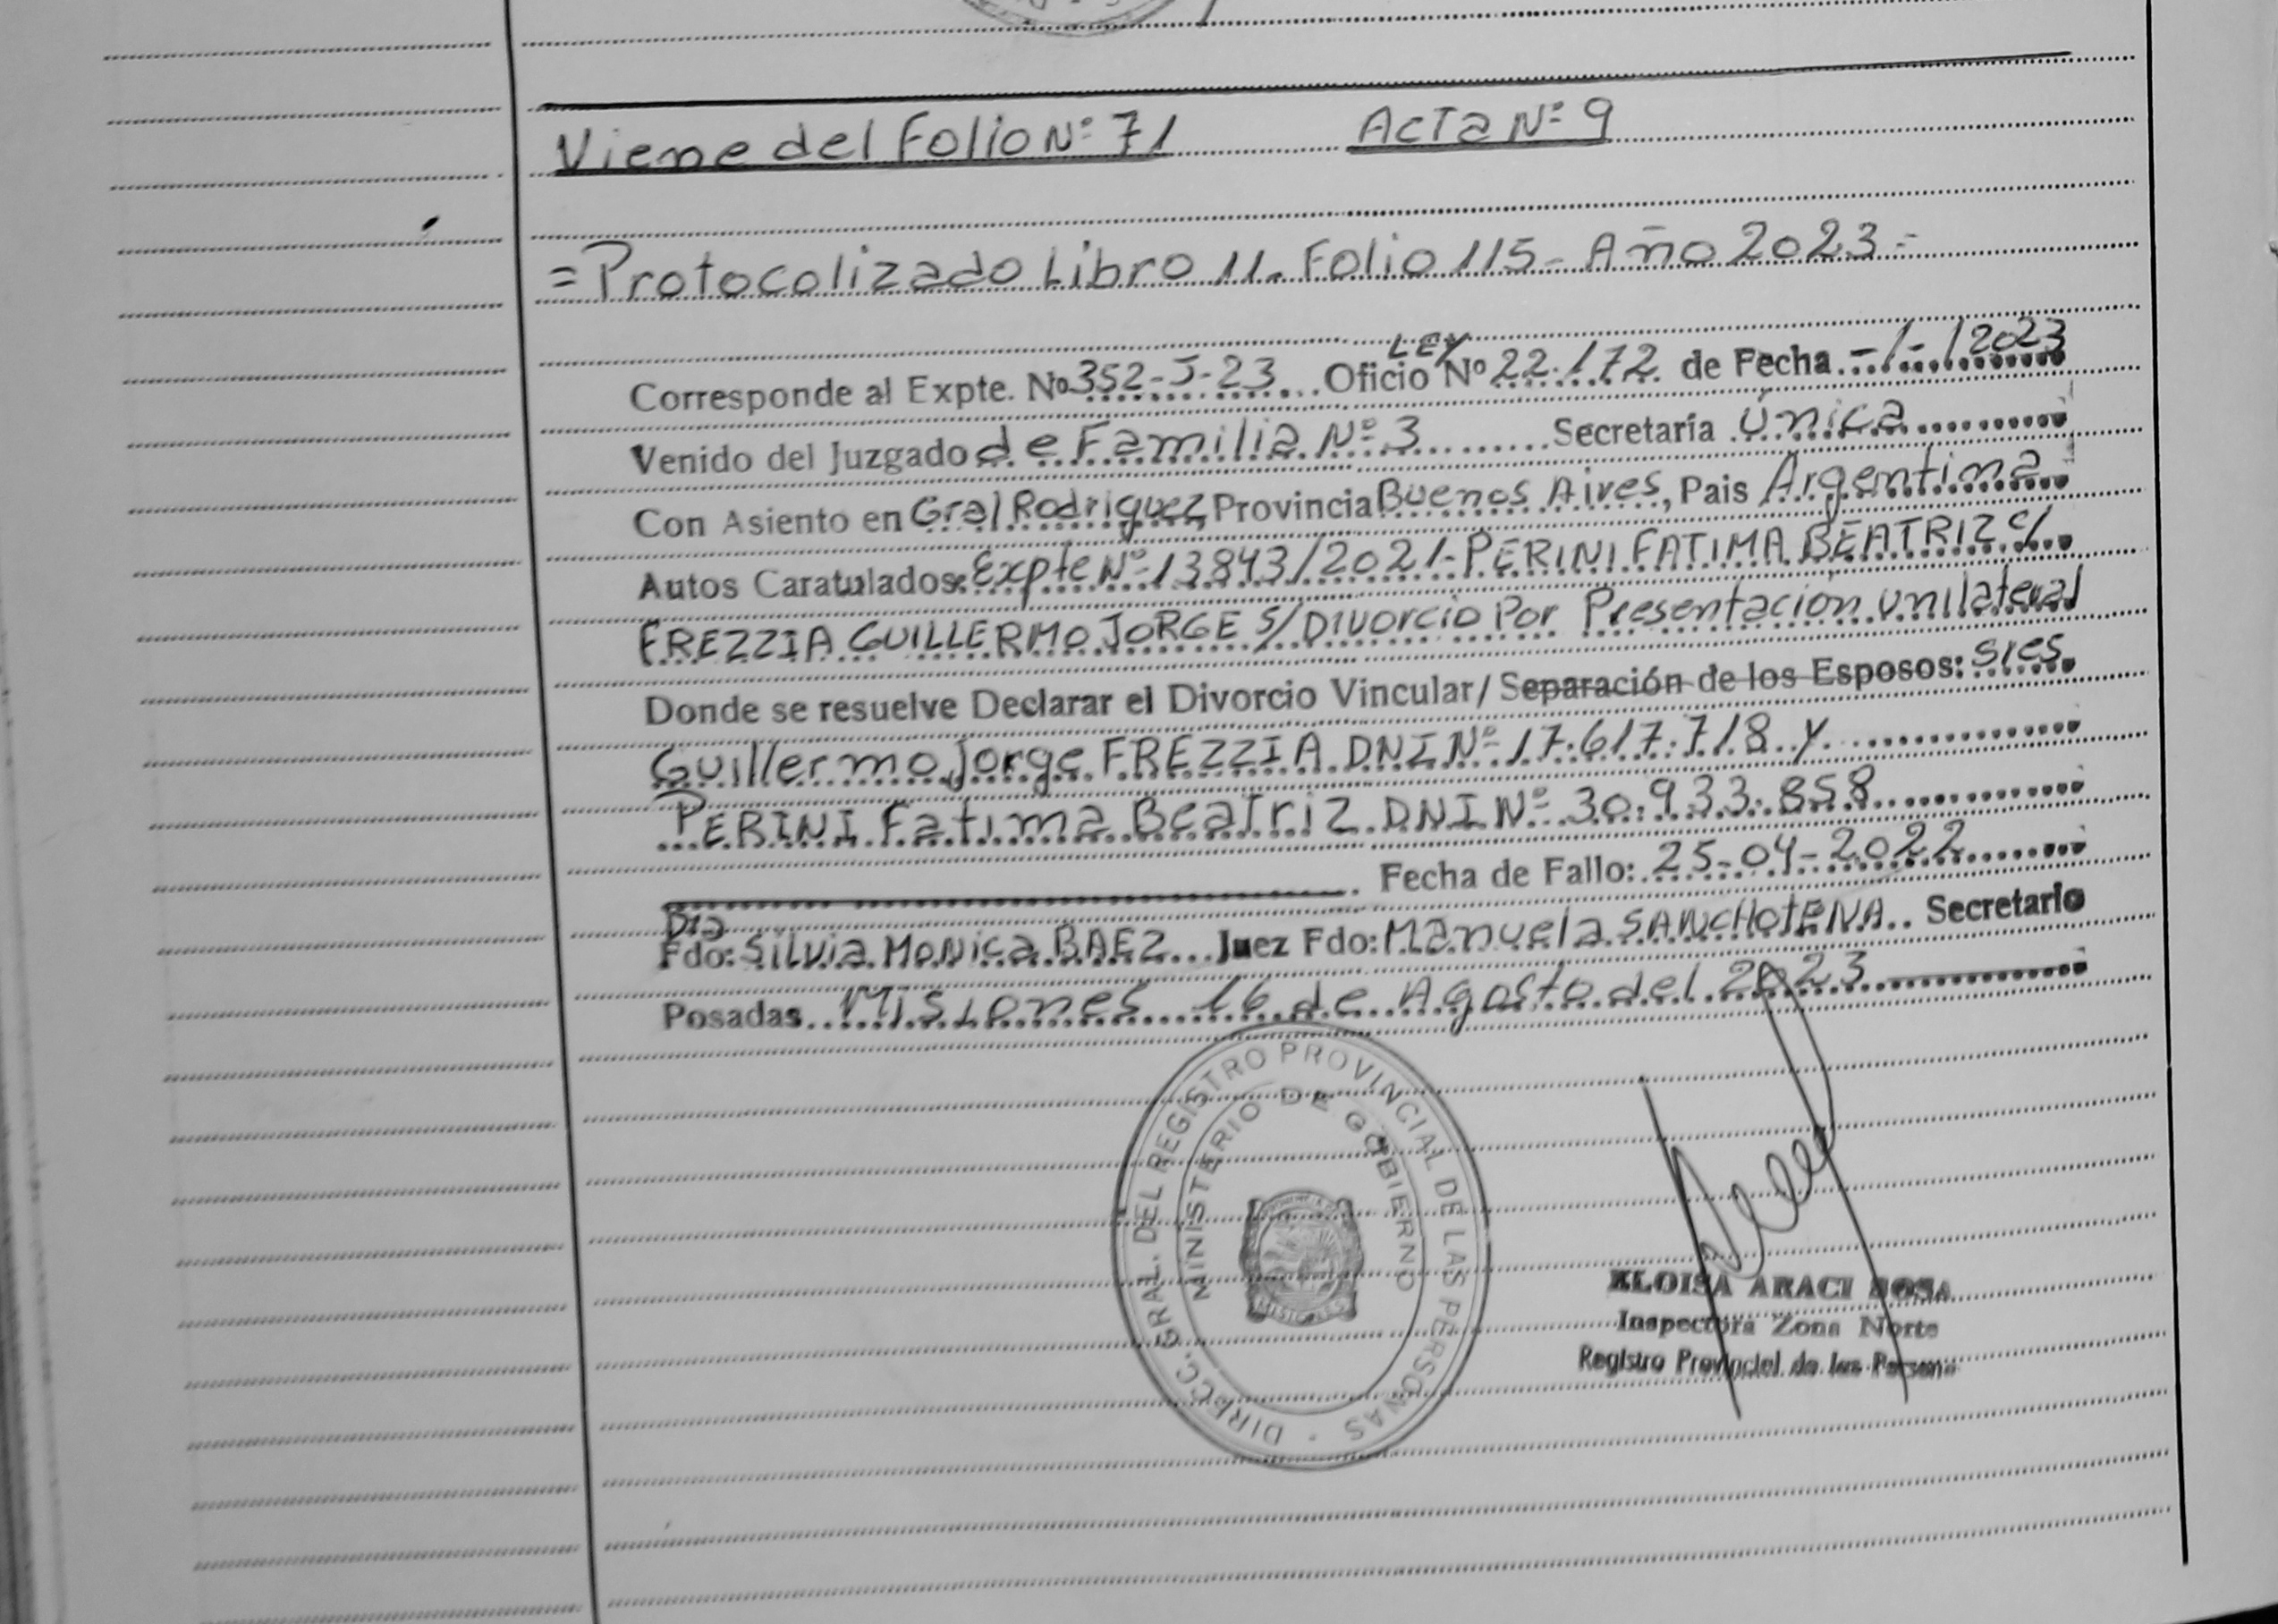 Viene del Folio Nº 71 Acta Nº 9
= Protocolizado Libro 11. Folio 115 - Año 2023 =
LEY
Corresponde al Expte. Nº 352-J-23 Oficio Nº 22.172 de Fecha -/-/2023
Venido del Juzgado de Familia Nº 3 Secretaría única
Con Asiento en Gral Rodriguez, Provincia Buenos Aires, Pais Argentina
Autos Caratulados: Expte Nº 13843/2021- PERINI FATIMA BEATRIZ c/
FREZZIA GUILLERMO JORGE S/ Divorcio Por Presentación unilateral
Donde se resuelve Declarar el Divorcio Vincular/ Separación de los Esposos: sres
Guillermo Jorge FREZZIA DNI Nº 17.617.718 y
PERINI Fatima Beatriz DNI Nº 30.933.858
Fecha de Fallo: 25-04-2022
Dra
Fdo: Silvia Monica BAEZ Juez Fdo: Manuela SANCHOTENA Secretario
Posadas Misiones 16 de Agosto del 2023
DIRECC. GRAL. DEL REGISTRO PROVINCIAL DE LAS PERSONAS
MINISTERIO DE GOBIERNO
MISIONES
ELOISA ARACI SOSA
Inspectora Zona Norte
Registro Provincial de las Personas